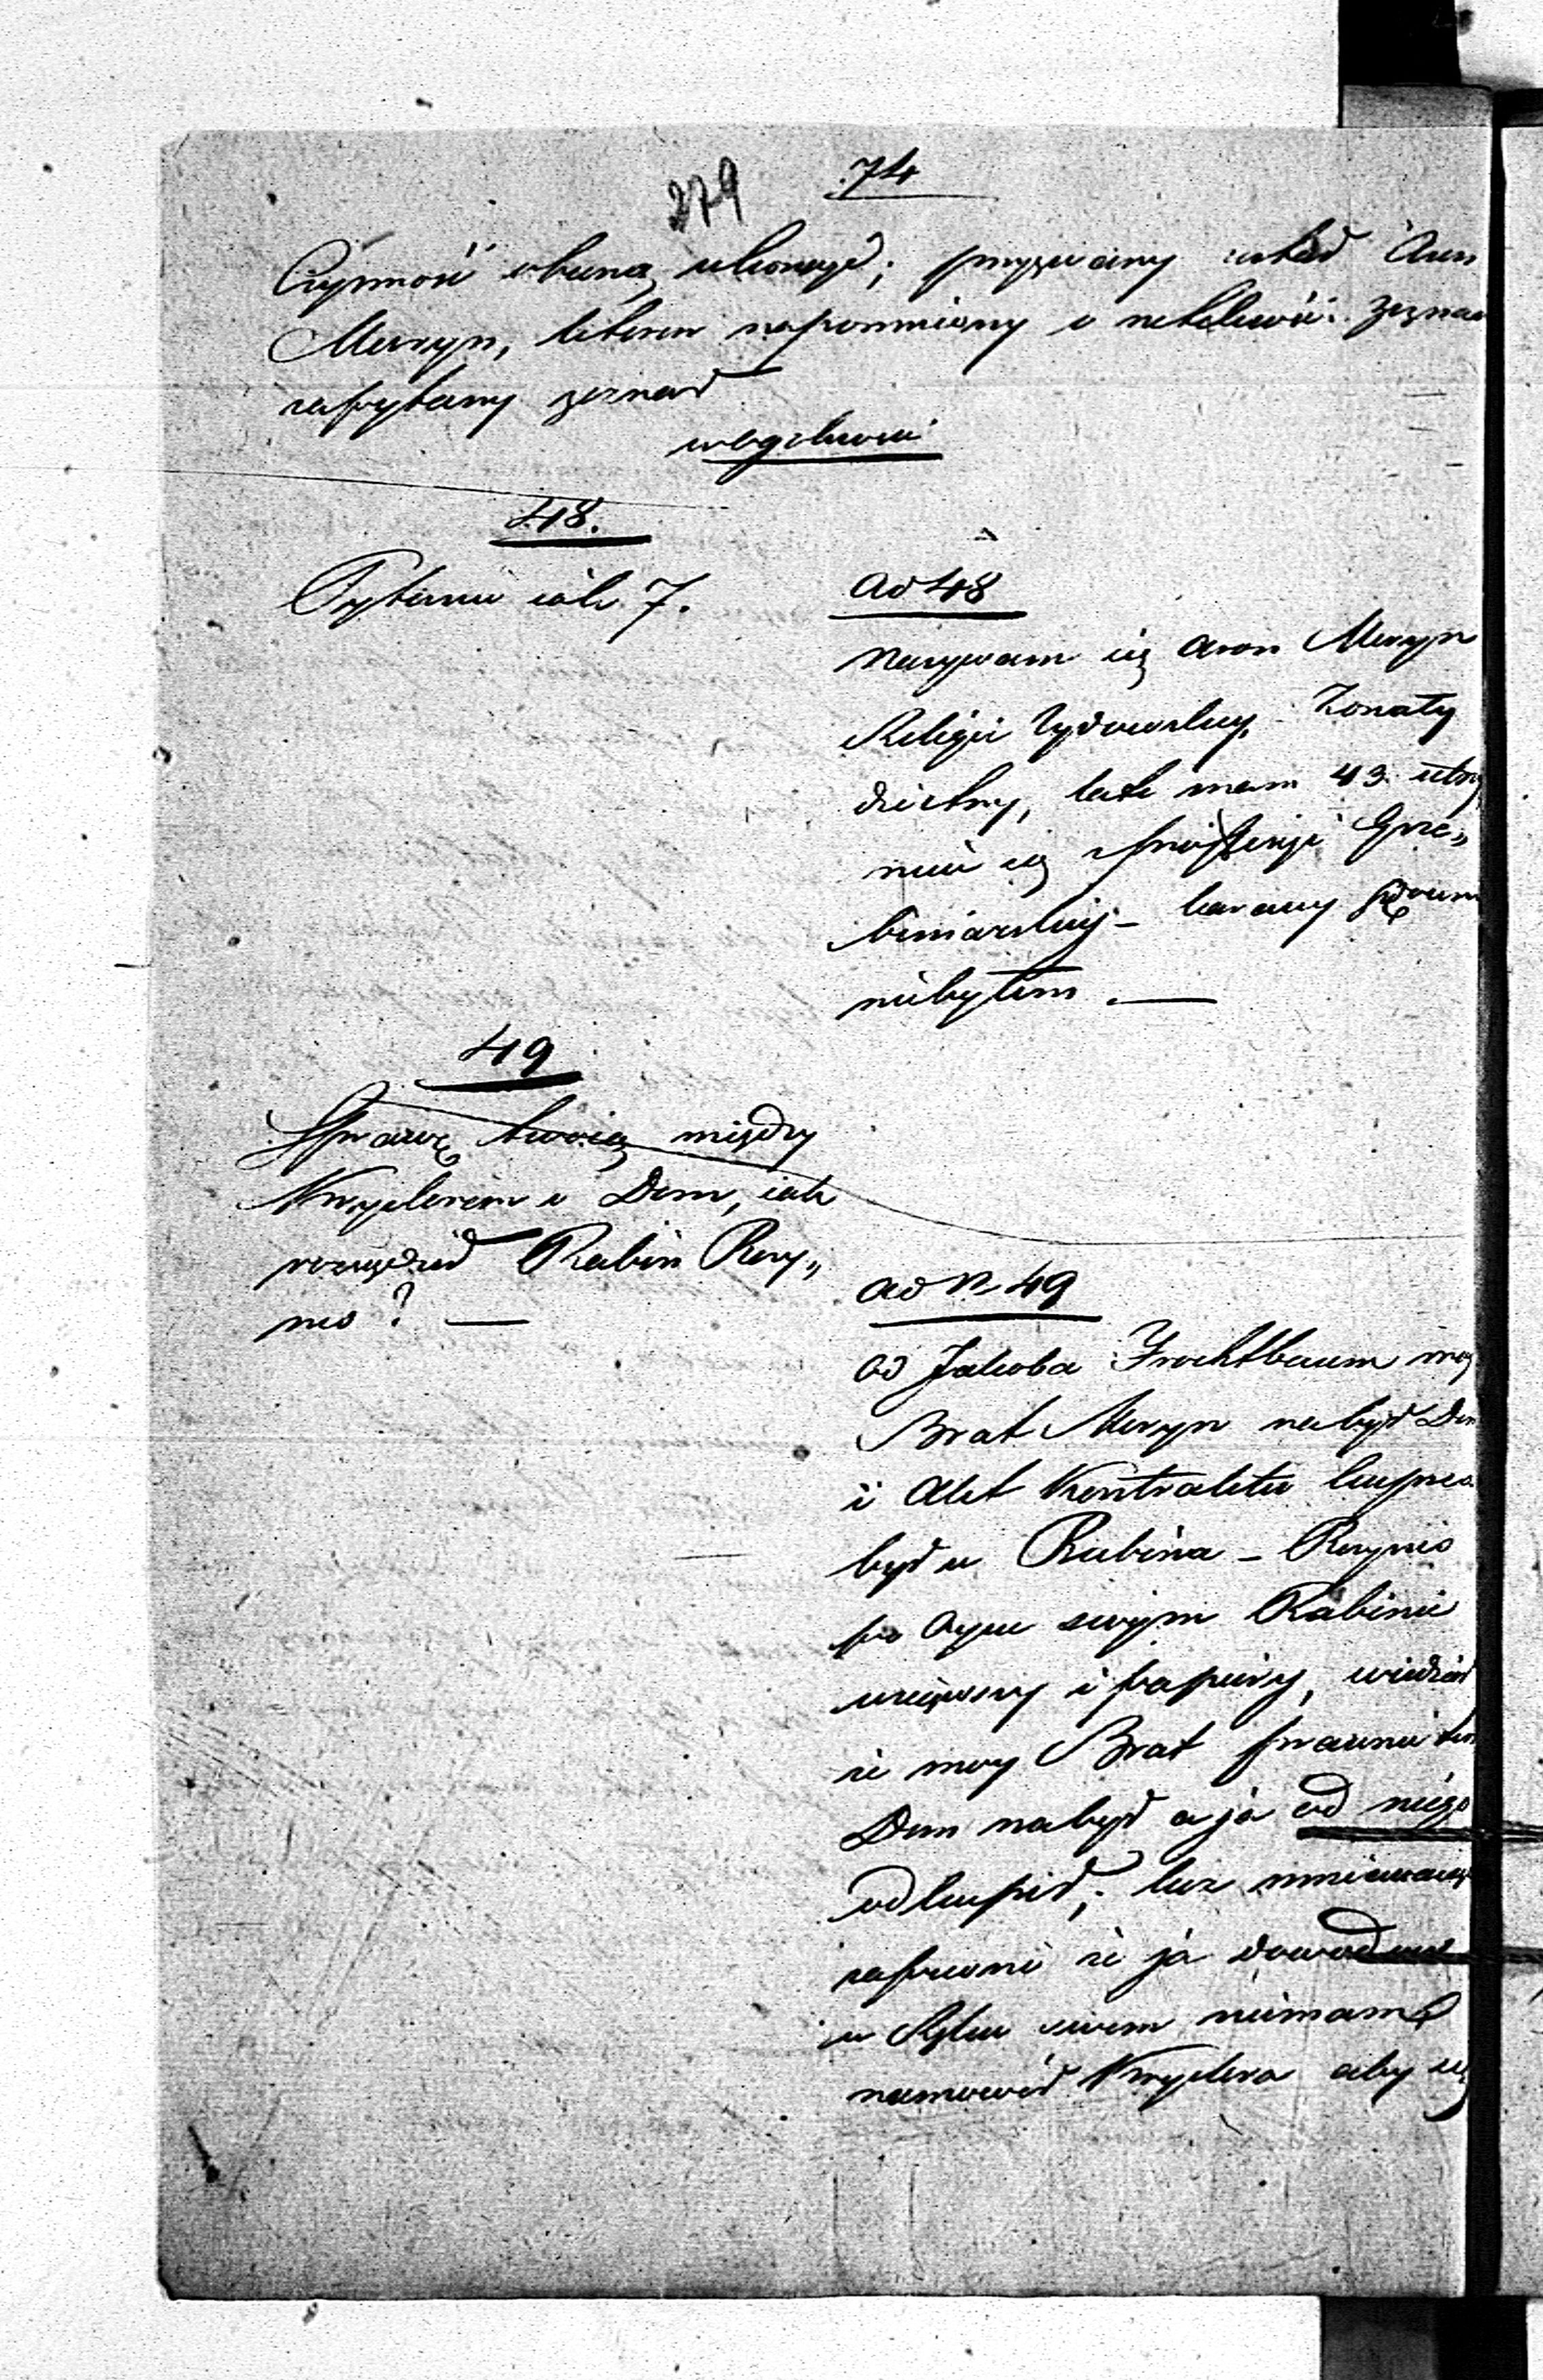 279 74
Czynność obecną ukończył; przyzwany został Aron
Merzyn, który napomniony o rzetelność zeznań
zapytany zeznał
w ogólności
48.
Pytanie iak 7.
ad 48
Nazywam się Aron Merzyn
Religii Żydowskiej, Żonaty
dzietny, lat mam 43. utrzy
muię się z Profesyi Grze„
bieniarskiej – karany sądownie
niebyłem. —
49
Sprawę twoią między
Knyplerem o Dom, iak
rozsądził Rabin Rozy„
nes? —
ad N 49
Od Jakoba Frochtbaum moy
Brat Merzyn nabył Dom
i Akt Kontraktu kupna
był u Rabina – Rozynes
po Oycu swoim Rabinie
wziąwszy i papiery, wiedział
że moy Brat prawnie ten
Dom nabył a ja od niego
odkupił; lecz mniemając
zapewne że ja dowodow
w Ręku swem niemam
namówił Knyplera aby się